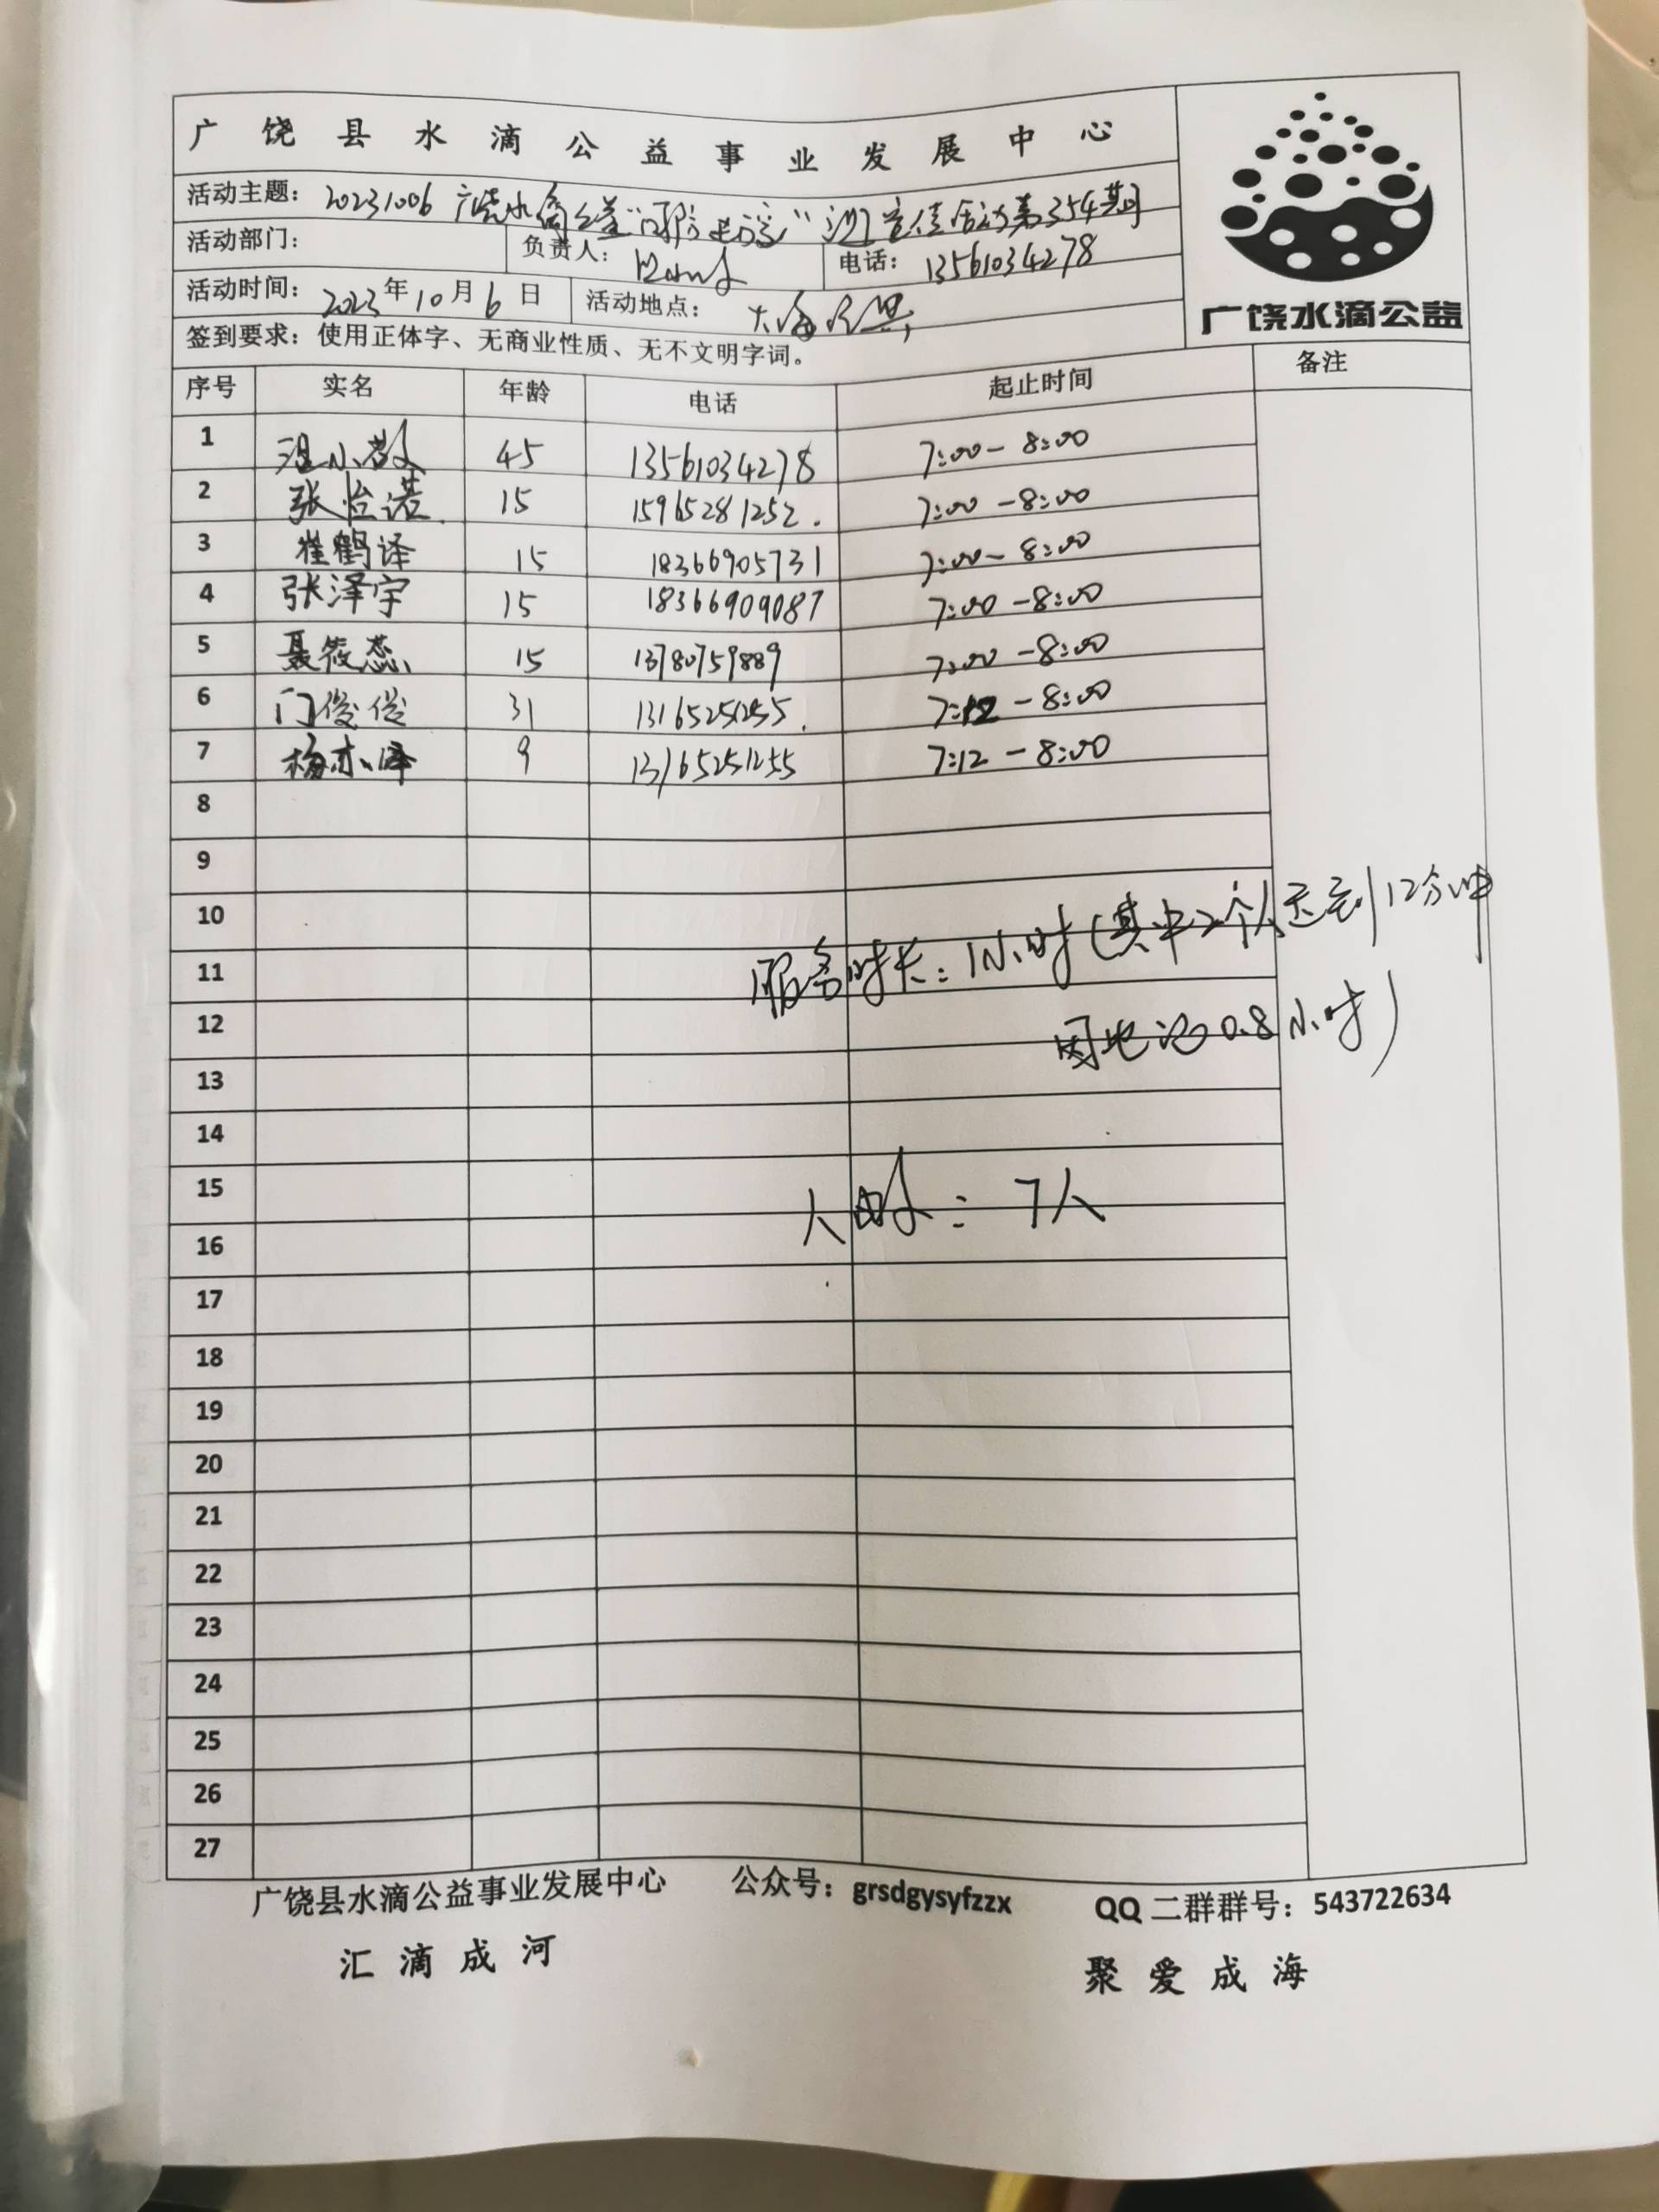 广饶县水滴公益事业发展中心
活动主题：20231006 广饶水滴公益“ ” 活动第354期
广饶水滴公益
活动部门： 负责人： 电话：13561034278
活动时间：2023年10月6日 活动地点：
签到要求：使用正体字、无商业性质、无不文明字词。
序号 实名 年龄 电话 起止时间 备注
1 45 13561034278 7:00-8:00
2 张怡诺 15 15965281252. 7:00-8:00
3 崔鹤译 15 18366905731 7:00-8:00
4 张泽宇 15 18366909087 7:00-8:00
5 聂筱蕊 15 13780759889 7:00-8:00
6 门俊俊 31 13165251255. 7:12-8:00
7 梅亦泽 9 13165251255 7:12-8:00
8
9
10
服务时长：1小时（其中2个人迟到12分钟
11
因此记0.8小时）
12
13
14
15
人数：7人
16
17
18
19
20
21
22
23
24
25
26
27
广饶县水滴公益事业发展中心 公众号：grsdgysyfzzx QQ二群群号：543722634
汇滴成河 聚爱成海